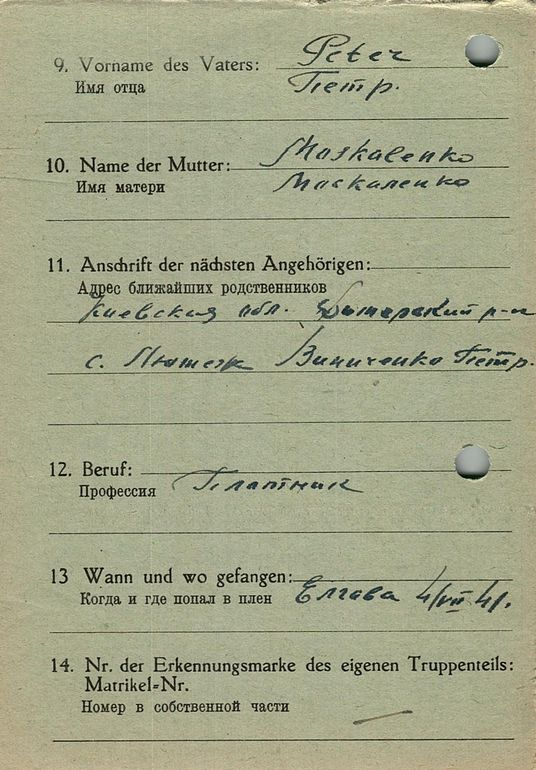 9. Vorname des Vaters: Peter
Имя отца Петр.
10. Name der Mutter: Moskalenko
Имя матери Маскаленко
11. Anschrift der nächsten Angehörigen:
Адрес ближайших родственников
Киевская обл. Дымерский р-н
с. Лютеж Виниченко Петр.
12. Beruf:
Профессия Платник
13 Wann und wo gefangen:
Когда и где попал в плен Елгава 4/VII 41.
14. Nr. der Erkennungsmarke des eigenen Truppenteils:
Matrikel=Nr.
Номер в собственной части —